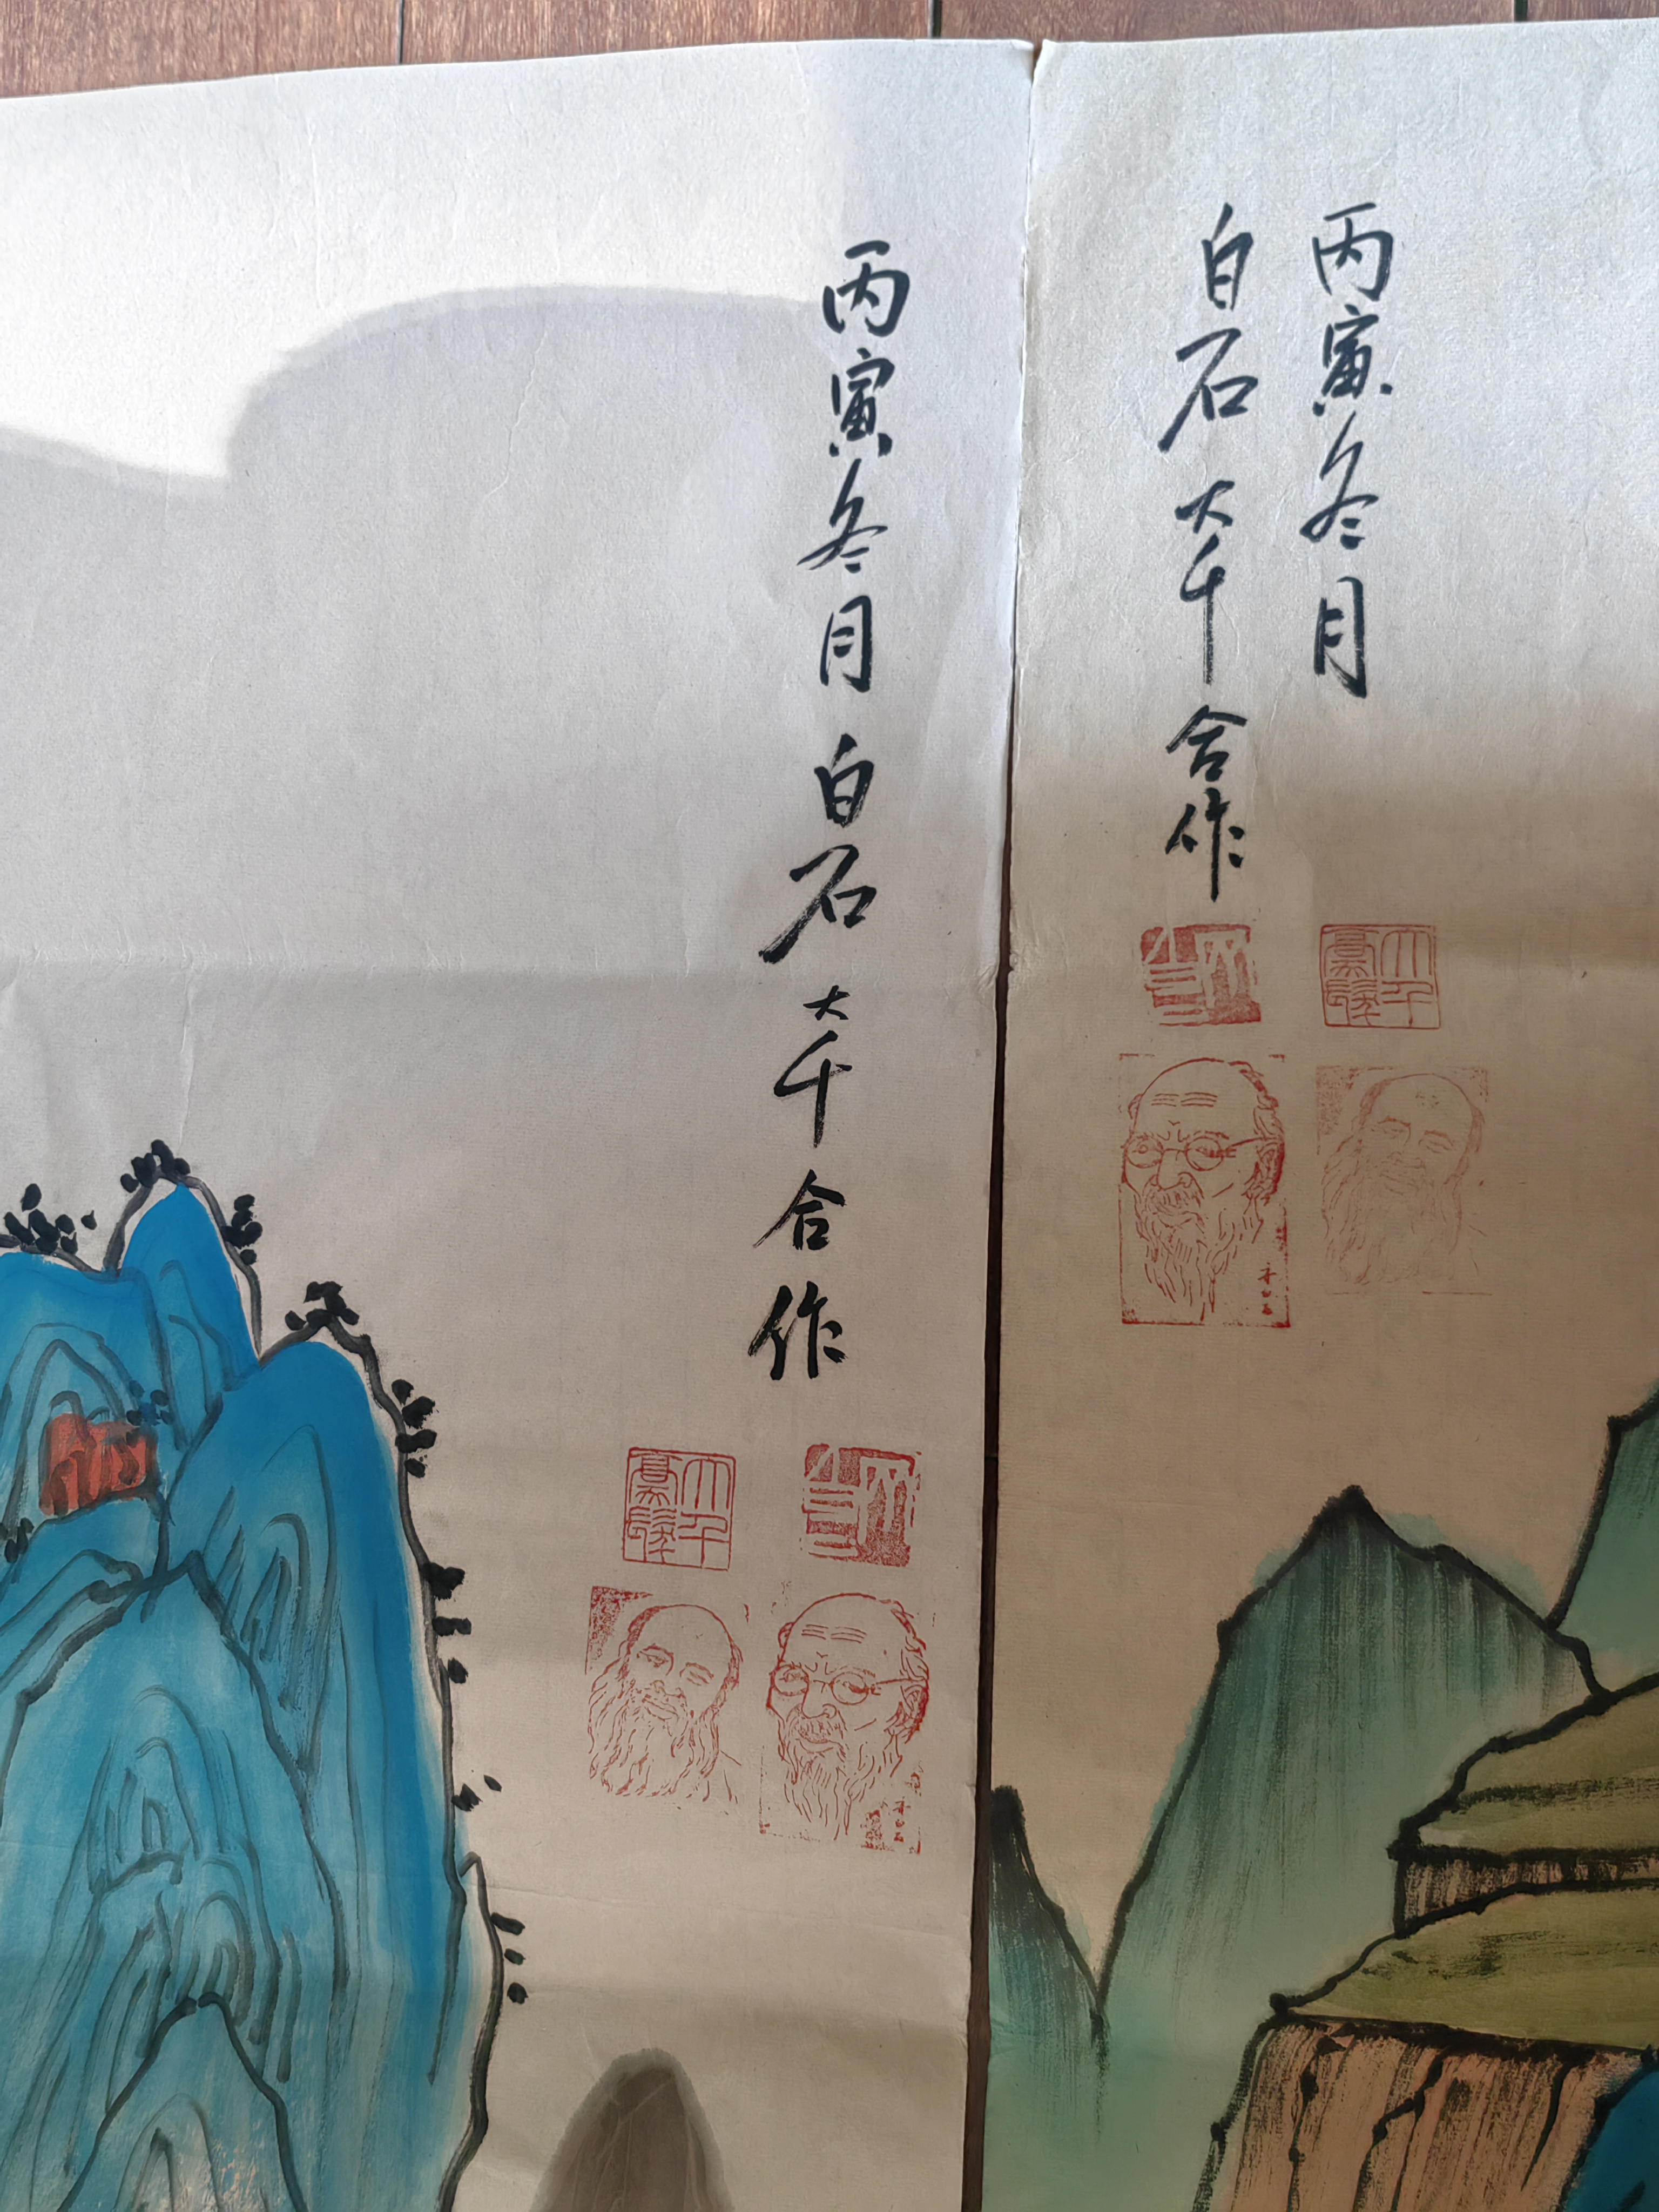 丙寅冬月
白石大千合作
丙寅冬月白石大千合作